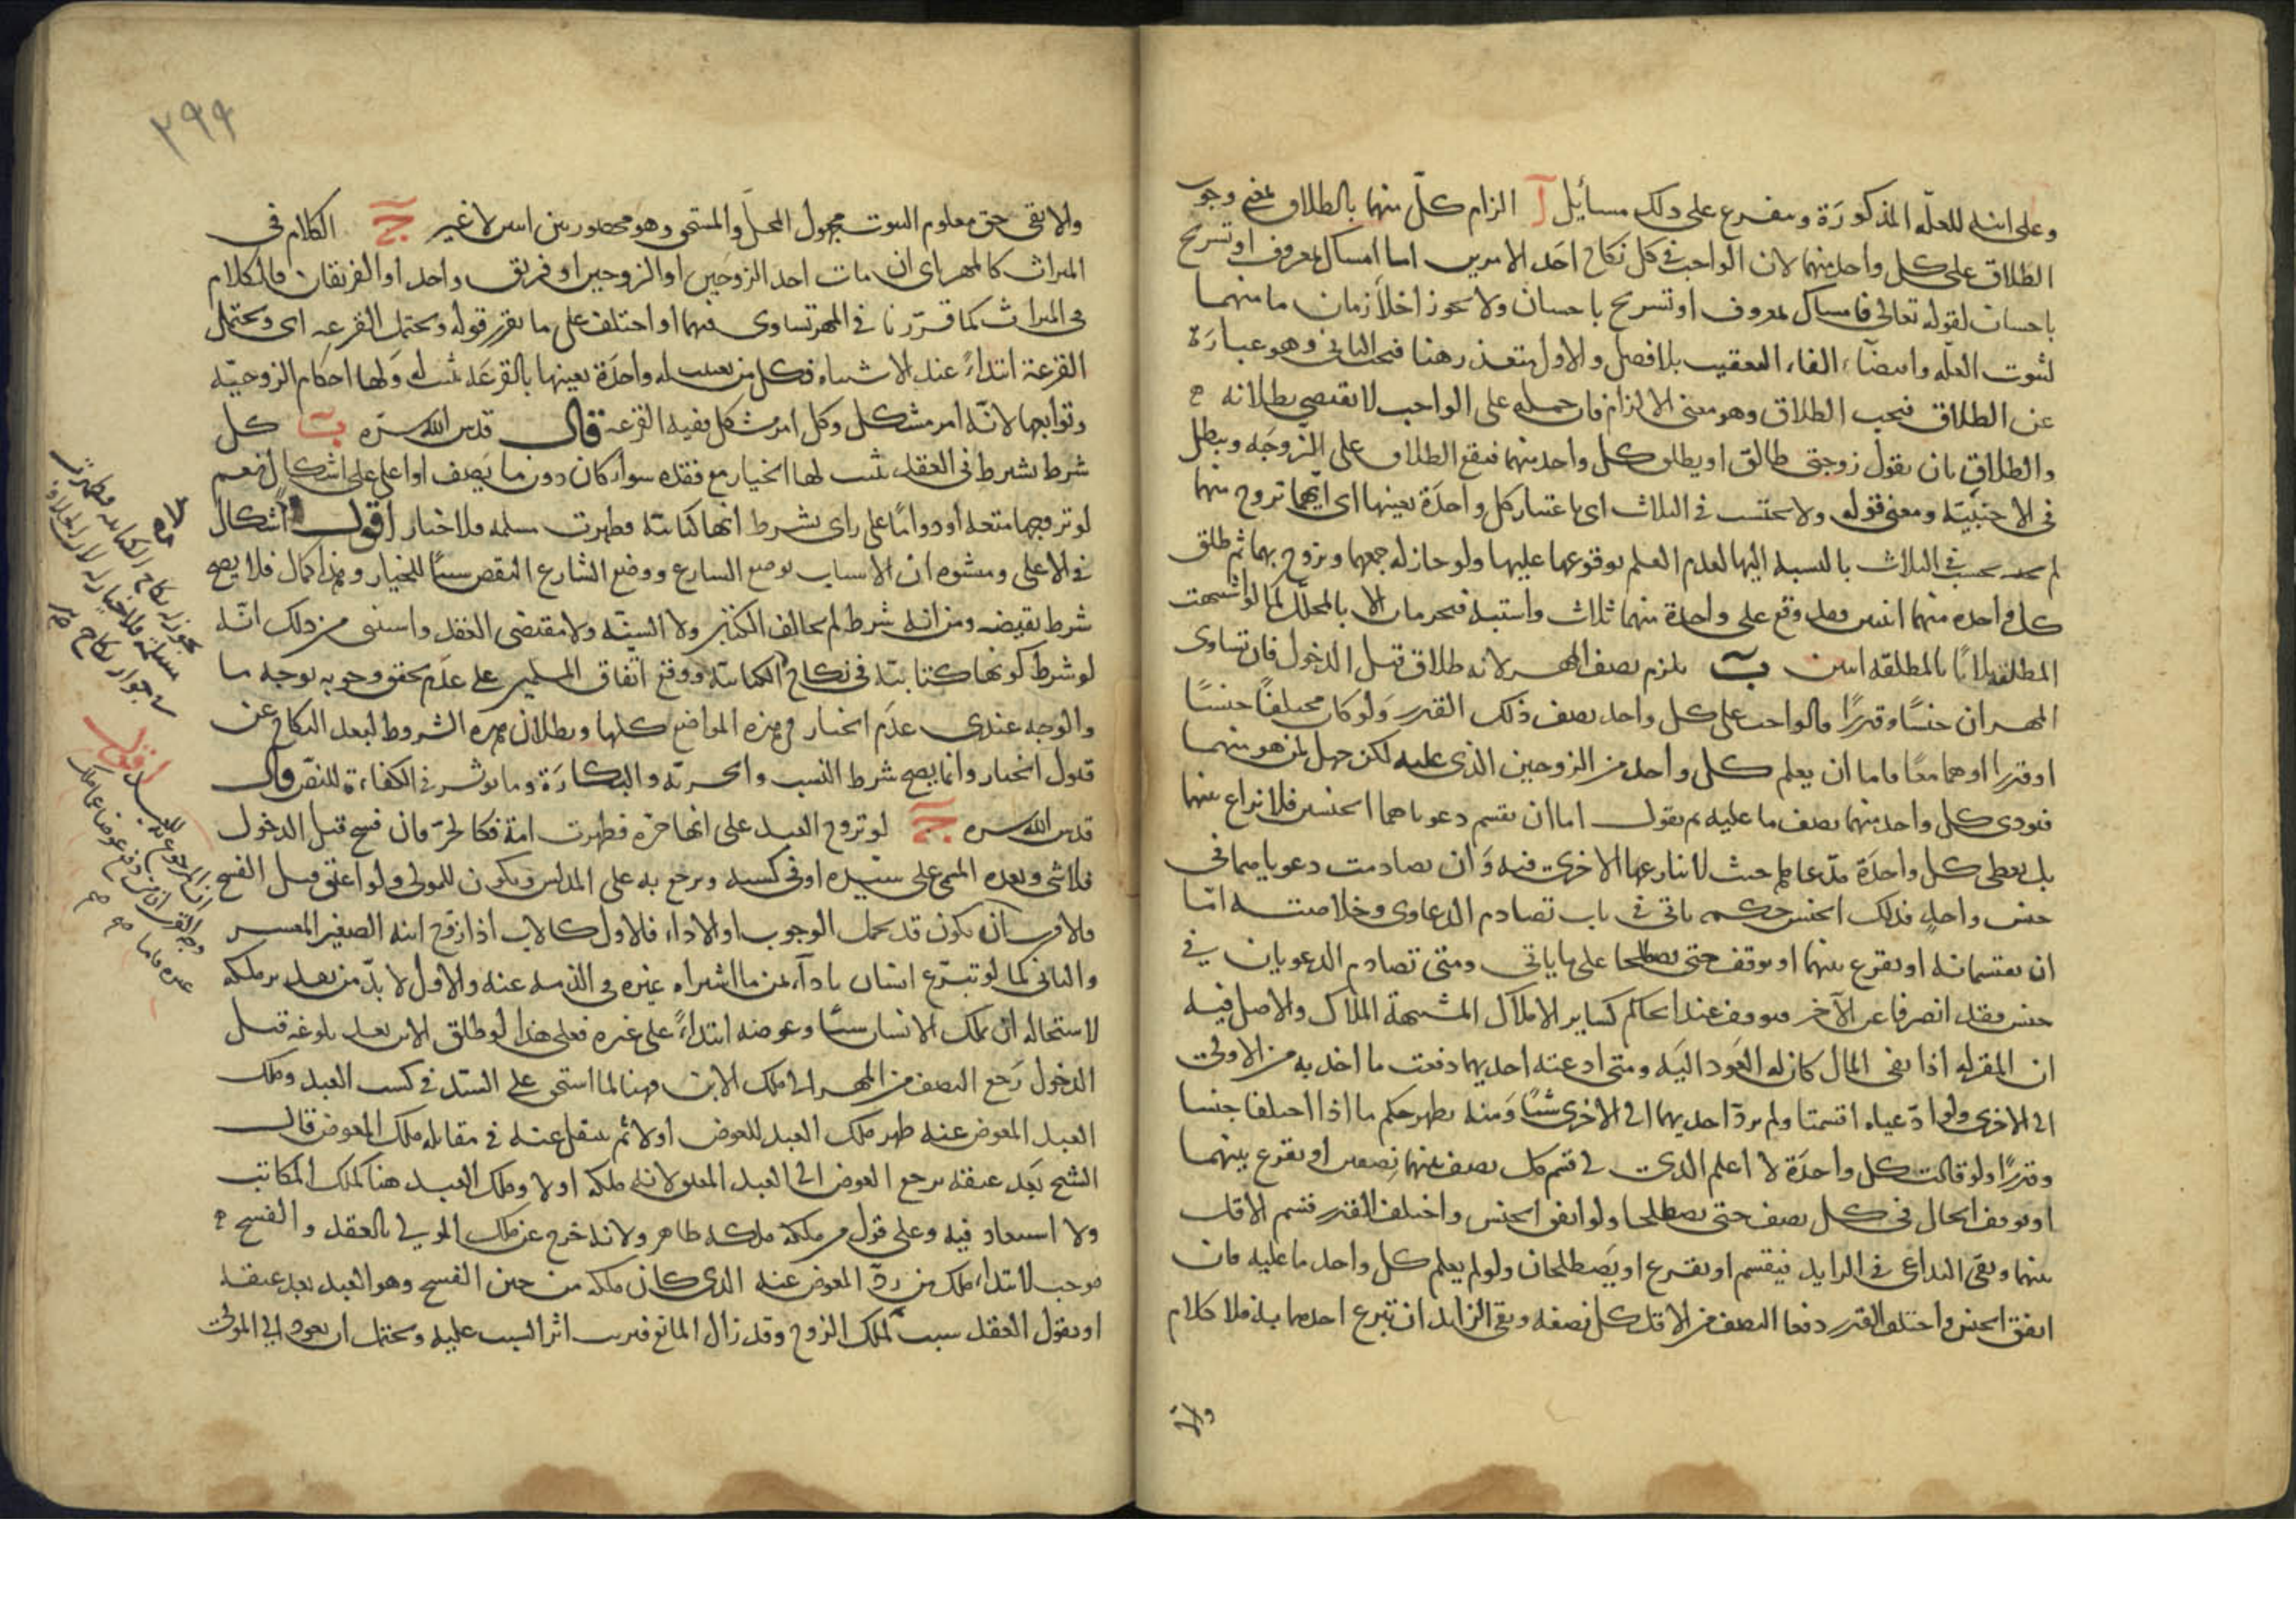 وعلى ابنه للعلة المذكورة ويتفرع على ذلك مسائل آ الزام كل منهما بالطلاق بمعنى وجوب
الطلاق على كل واحد منهما لان الواجب في كل نكاح احد الامرين اما امساك بمعروف او تسريح
باحسان لقوله تعالى فامساك بمعروف او تسريح باحسان ولا يجوز اخلاء زمان ما منهما
لثبوت العلة وايضا الفاء للتعقيب بلا فصل والاول متعذر هنا فيجب الثاني وهو عبارة
عن الطلاق فيجب الطلاق وهو معنى الالزام فان حمله على الواجب لا يقتضي بطلانه
والطلاق بان يقول زوجتي طالق او يطلق كل واحد منهما فيقع الطلاق على الزوجة ويبطل
في الاجنبية ومعنى قوله ولا يحتسب في الثلاث اي باعتبار كل واحدة بعينها اي ايتهما تزوج منهما
لم يحتسب في الثلاث بالنسبة اليها لعدم العلم بوقوعها عليها ولو جاز له جمعهما وتزوج بهما ثم طلق
كل واحدة منهما اثنتين فقد وقع على واحدة منهما ثلاث واشتبه فتحرمان الا بالمحلل كما لو اشتبهت
المطلقة ثلاثا بالمطلقة اثنتين ب يلزم نصف المهر لانه طلاق قبل الدخول فان تساوى
المهران جنسا وقدرا فالواجب على كل واحد نصف ذلك القدر ولو كان مختلفا جنسا
او قدرا او هما معا فاما ان يعلم كل واحد من الزوجين الذي عليه لكن جهل لمن هو منهما
فيؤدي كل واحد منهما نصف ما عليه ثم نقول اما ان تقسم دعوياهما الجنسين فلا نزاع بينهما
بل يعطى كل واحدة مدعاها حيث لا تنازعها الاخرى فيه وان تصادمت دعوياهما في
جنس واحد فذلك الجنس حكمه ياتي في باب تصادم الدعاوى وخلاصته اما
ان يقتسمانه او يقرع بينهما او يوقف حتى يصطلحا على ما ياتي ومتى تصادم الدعويان في
جنس فقد انصرفا عن الآخر فيوقف عند الحاكم كساير الاملاك المشتبهة الملاك والاصل فيه
ان المقر له اذا نفى المال كان له العود اليه ومتى ادعته احديهما دفعت ما اخذ به من الاولى
الى الاخرى ولو ادعياه اقتسمتا ولم يرد احديهما الى الاخرى شيئا ومنه يظهر حكم ما اذا اختلفا جنسا
وقدرا ولو قالت كل واحدة لا اعلم الذي لي قسم كل نصف بينهما نصفين او يقرع بينهما
او يوقف الحال في كل نصف حتى يصطلحا ولو اتفق الجنس واختلف القدر قسم الاقل
بينهما وبقي التداعي في الزايد فيقسم او يقرع او يصطلحان ولو لم يعلم كل واحد ما عليه فان
اتفق الجنس واختلف القدر دفعا النصف من الاقل كل نصفه وبقي الزايد ان تبرع احدهما به فلا كلام
والا
٢٩٩
والا بقي حق معلوم الثبوت مجهول المحل والمستحق وهو محصور بين اثنين لا غير ج الكلام في
الميراث كالمهر اي ان مات احد الزوجين او الزوجين او فريق واحد او الفريقان فالكلام
في الميراث كما قررنا في المهر تساوى فيهما او اختلف على ما تقرر قوله ويحتمل القرعة اي ويحتمل
القرعة ابتداء عند الاشتباه فكل من تعينت له واحدة بعينها بالقرعة ثبت له ولها احكام الزوجية
وتوابعها لانه امر مشكل وكل امر مشكل ففيه القرعة قال قدس الله سره ب كل
شرط يشترط في العقد يثبت لها الخيار مع فقده سواء كان دون ما وصف او اعلى على اشكال نعم
لو تزوجها متعة او دواما على راي بشرط انها كتابية فظهرت مسلمة فلا خيار اقول اشكال
في الاعلى ومنشؤه ان الاسباب بوضع الشارع ووضع الشارع النقص سببا للخيار وهذا كمال فلا يصح
شرط نقيضه ومن انه شرط لم يخالف الكتاب ولا السنة ولا مقتضى العقد واستثنى من ذلك انه
لو شرط كونها كتابية في نكاح الكتابية ووقع اتفاق المسلمين على عدم تحقق وجوبه بوجه ما
والوجه عندي عدم الخيار في هذه المواضع كلها وبطلان هذه الشروط لبعد النكاح عن
قبول الخيار وانما يصح شرط النسب والحرية والبكارة وما يؤثر في الكفاءة للنص قال
قدس الله سره ج لو تزوج العبد على انها حرة فظهرت امة فكالحر فان فسخ قبل الدخول
فلا شيء وبعده المسمى على سيده او في كسبه ويرجع به على المدلس ويكون للمولى ولو اعتق قبل الفسخ
فالاقرب ان يكون قد تحمل الوجوب او الاداء فالاول كالاب اذا زوج ابنه الصغير المعسر
والثاني كما لو تبرع انسان باداء ثمن ما اشتراه غيره في الذمة عنه والاول لا بد من تعدد ملكه
لاستحالة ان يملك الانسان شيئا وعوضه ابتداء على غيره فعلى هذا لو طلق الابن بعد بلوغه قبل
الدخول رجع النصف من المهر الى ملك الابن وهنا لما استحق على السيد في كسب العبد وملك
العبد المعوض عنه ظهر ملك العبد للعوض اولا ثم ينتقل عنه في مقابلة ملك المعوض قال
الشيخ بعد عتقه يرجع العوض الى العبد المعتق لانه ملكه اولا وملك العبد هنا كملك المكاتب
ولا استبعاد فيه وعلى قول من ملكه ملكه ظاهر ولانه خرج عن ملك المولى بالعقد والفسخ
موجب لابتداء ملك من رد المعوض عنه الذي كان ملكه من حين الفسخ وهو العبد بعد عتقه
او نقول العقد سبب لملك الزوج وقد زال المانع فترتب اثر السبب عليه ويحتمل ان يعود الى المولى